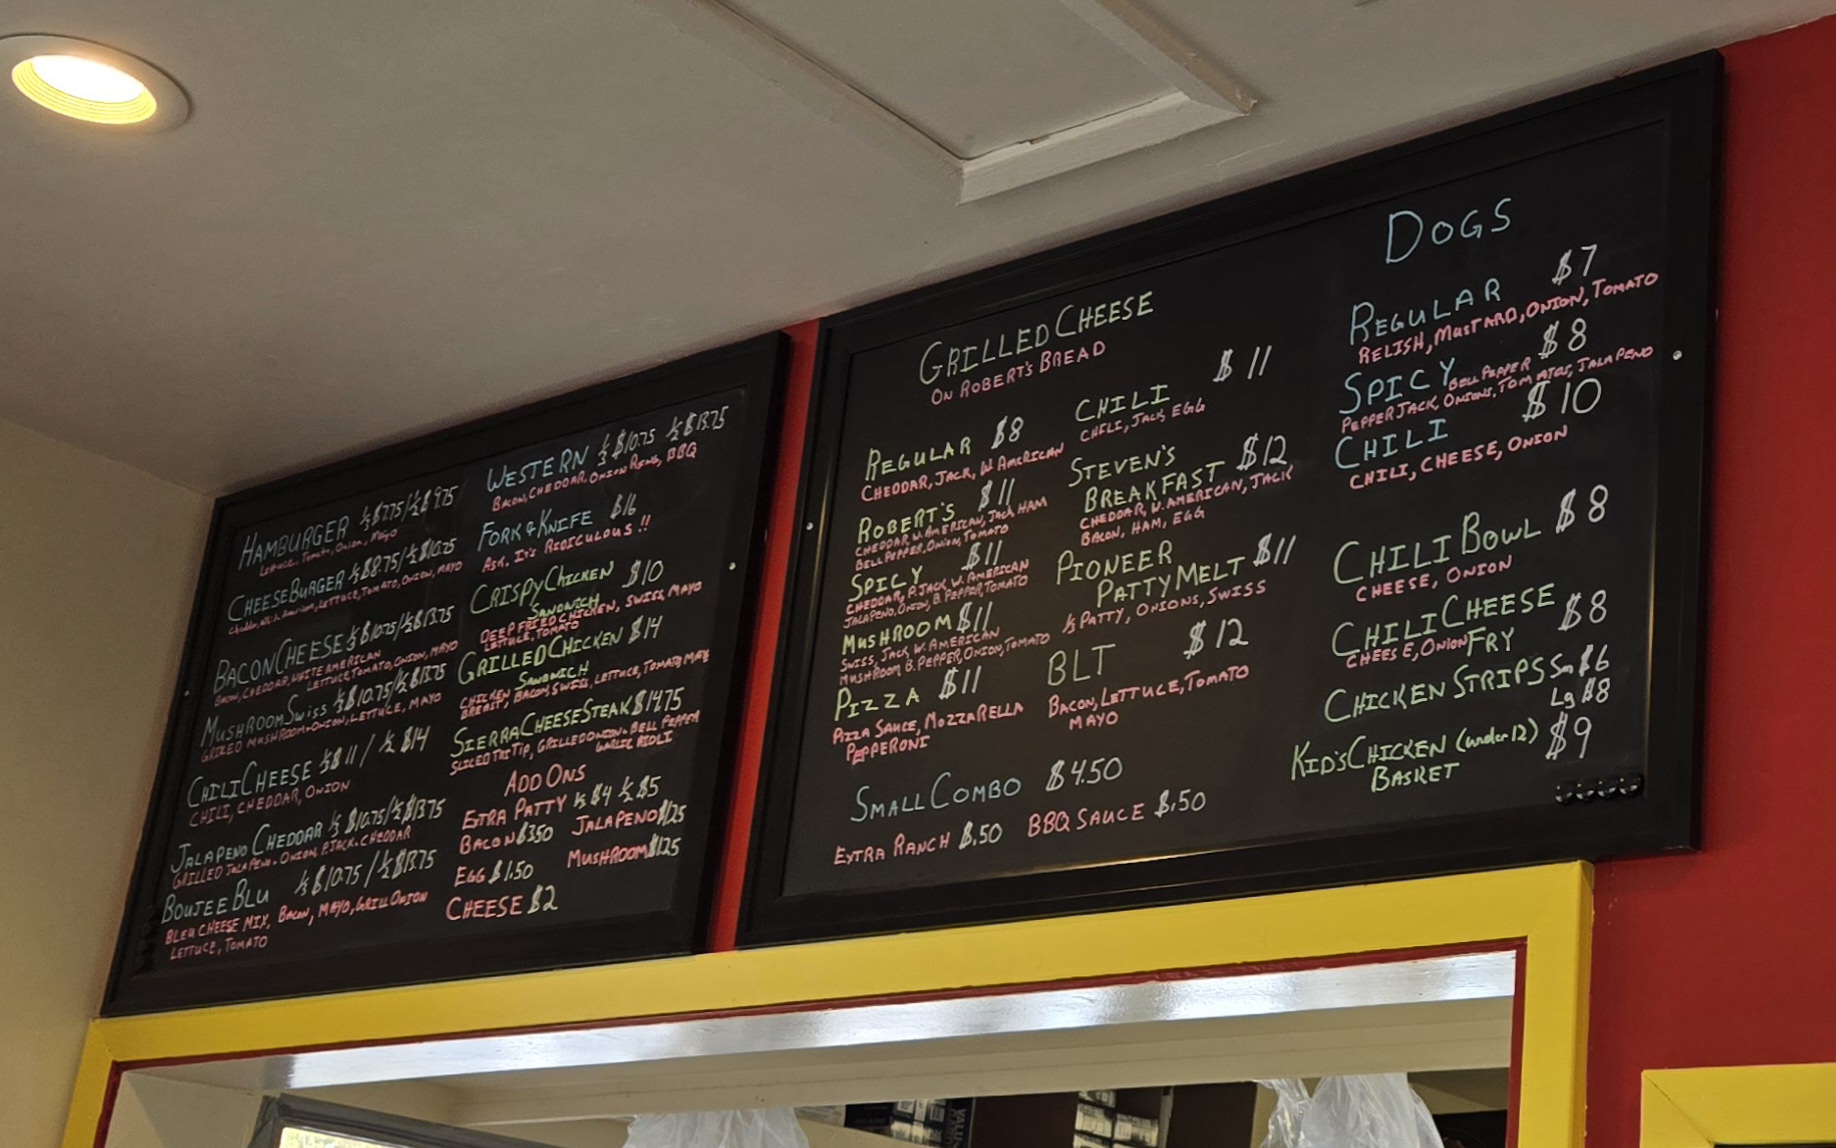 HAMBURGER ⅓ $7.75/½ $9.75
LETTUCE, Tomato, Onion, Mayo
CHEESEBURGER ⅓ $8.75/½ $10.75
Cheddar, White American, LETTUCE, TOMATO, ONION, MAYO
BACON CHEESE ⅓ $10.75/½ $13.75
BACON, CHEDDAR, WHITE AMERICAN
LETTUCE, TOMATO, ONION, MAYO
MUSHROOM SWISS ⅓ $10.75/½ $13.75
GRILLED MUSHROOM + ONION, LETTUCE, MAYO
CHILI CHEESE ⅓ $11 / ½ $14
CHILI, CHEDDAR, ONION
JALAPENO CHEDDAR ⅓ $10.75/½ $13.75
GRILLED JALAPENO + ONION, P. JACK + CHEDDAR
BOUJEE BLU ⅓ $10.75 / ½ $13.75
BLEU CHEESE MIX, BACON, MAYO, GRILL ONION
LETTUCE, TOMATO
WESTERN ⅓ $10.75 ½ $13.75
BACON, CHEDDAR, ONION RING, BBQ
FORK & KNIFE $16
ASK, IT'S RIDICULOUS!!
CRISPY CHICKEN $10
SANDWICH
DEEP FRIED CHICKEN, SWISS, MAYO
LETTUCE, TOMATO
GRILLED CHICKEN $14
SANDWICH
CHICKEN BREAST, BACON, SWISS, LETTUCE, TOMATO, MAYO
SIERRA CHEESE STEAK $14.75
SLICED TRI TIP, GRILLED ONION + BELL PEPPER
GARLIC AIOLI
ADD ONS
EXTRA PATTY ⅓ $4 ½ $5
BACON $3.50 JALAPENO $1.25
EGG $1.50 MUSHROOM $1.25
CHEESE $2
GRILLED CHEESE
ON ROBERT'S BREAD
REGULAR $8
CHEDDAR, JACK, W. AMERICAN
ROBERT'S $11
CHEDDAR, W. AMERICAN, JACK, HAM
BELL PEPPER, ONION, TOMATO
SPICY $11
CHEDDAR, P. JACK, W. AMERICAN
JALAPENO, ONION, B. PEPPER, TOMATO
MUSHROOM $11
SWISS, JACK, W. AMERICAN
MUSHROOM, B. PEPPER, ONION, TOMATO
PIZZA $11
PIZZA SAUCE, MOZZARELLA
PEPPERONI
CHILI $11
CHILI, JACK, EGG
STEVEN'S
BREAKFAST $12
CHEDDAR, W. AMERICAN, JACK
BACON, HAM, EGG
PIONEER
PATTY MELT $11
⅓ PATTY, ONIONS, SWISS
BLT $12
BACON, LETTUCE, TOMATO
MAYO
SMALL COMBO $4.50
EXTRA RANCH $.50 BBQ SAUCE $.50
DOGS
REGULAR $7
RELISH, MUSTARD, ONION, TOMATO
SPICY $8
BELL PEPPER
PEPPER JACK, ONIONS, TOMATOS, JALAPENO
CHILI $10
CHILI, CHEESE, ONION
CHILI BOWL $8
CHEESE, ONION
CHILI CHEESE FRY $8
CHEESE, ONION
CHICKEN STRIPS Sm $6
Lg $8
KID'S CHICKEN (under 12) $9
BASKET